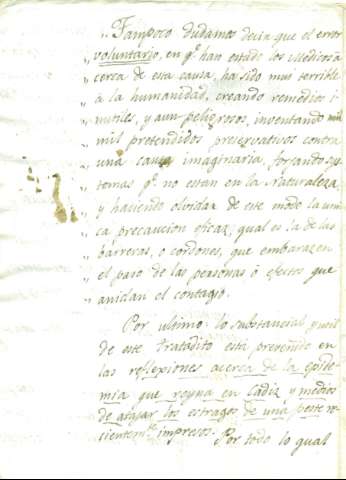 „ Tampoco dudamos decir que el error
„ voluntario, en q.e han estado los Medicos a
„ cerca de esta causa, ha sido muy terrible
„ à la humanidad, creando remedios i-
„ nutiles, y aun peligrosos, inventando mil
„ mil pretendidos preservativos contra
„ una causa imaginaria, forjando sys-
„ temas q.e no estan en la Naturaleza,
„ y haciendo olvidar de este modo la uni-
„ ca precaucion eficaz, qual es la de las
„ barreras, o cordones, que embarazen
„ el paso de las personas ò efectos que
„ anidan el contagio.
Por ultimo: lo substancial y util
de este tratadito està prevenido en
las reflexiones acerca de la epide-
mia que reyna en Cadiz y medios
de atajar los estragos de una peste re-
cientem.te impresos. Por todo lo qual